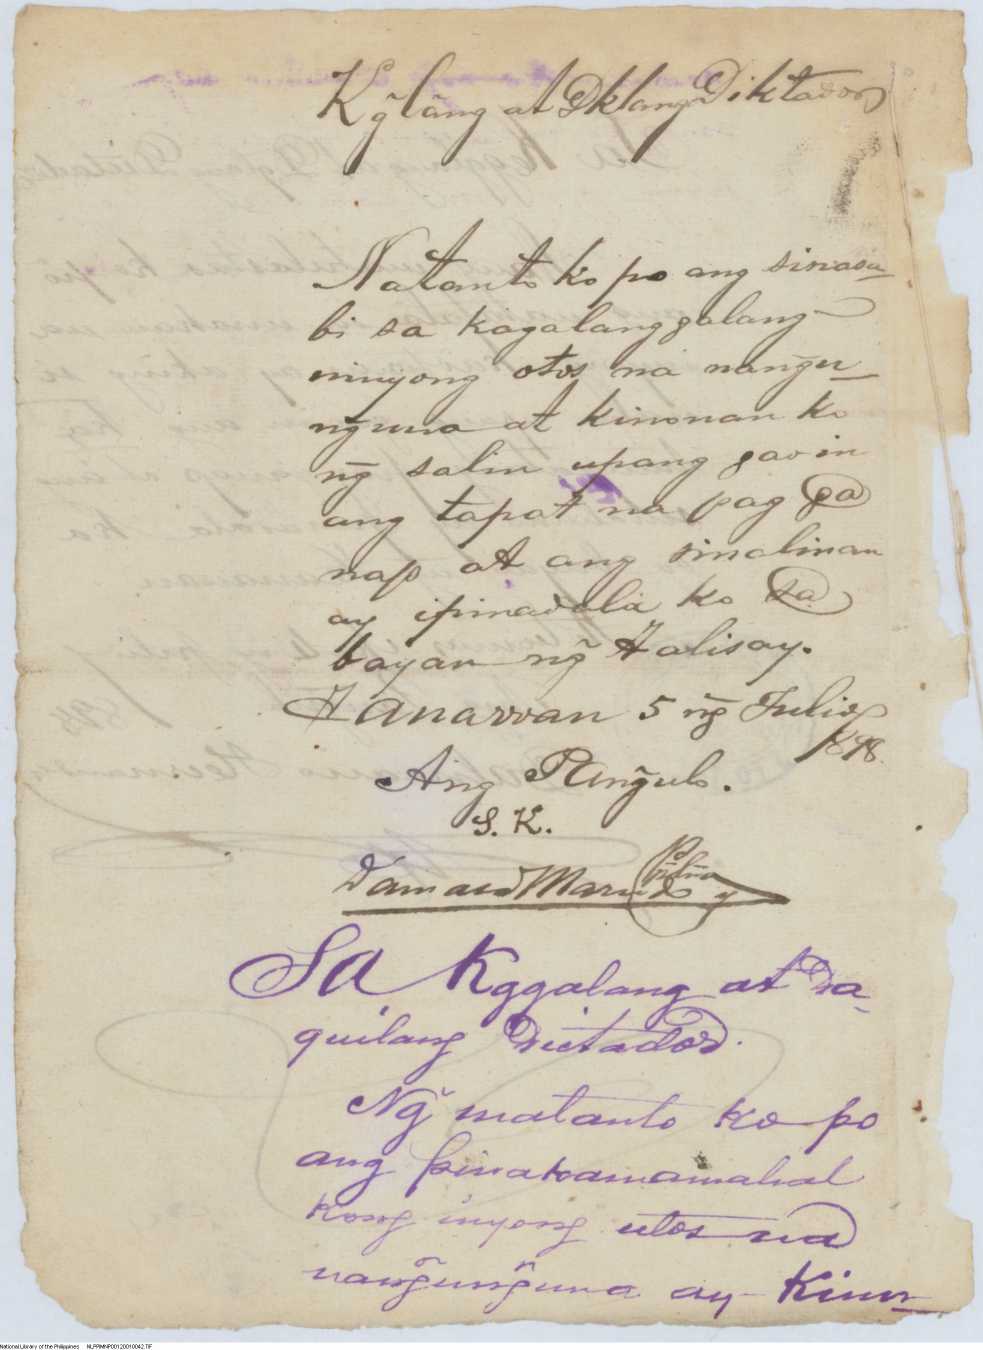 Kg̃lãng at Dklang Diktador
Natanto ko po ang sinasa-
bi sa kagalanggalang
ninyong otos na nang̃u-
ng̃una at kinonan ko
ng̃ salin upang gaoin
ang tapat na pag ga
nap at ang sinalinan
ay ipinadala ko sa
bayan ng̃ Talisay.
Tanawan 5 ng̃ Julio
1898.
Ang Pang̃ulo.
S. K.
Damaso
Sa Kggalang at Da-
quilang Dictador.
Ng̃ matanto ko po
ang pinakamamahal
kong inyong utos na
nang̃ung̃una ay Kinu-
National Library of the Philippines NLPRMNP00120010042.TIF